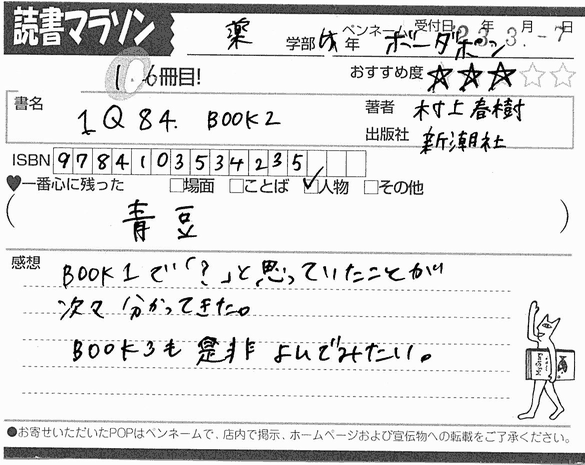 読書マラソン
薬 学部 4 年 ペンネーム ボーダホン 受付日 '23年3月-7日
106冊目!
おすすめ度 ★★★☆☆
書名 1Q84. BOOK2
著者 村上春樹
出版社 新潮社
ISBN 9784103534235
♥一番心に残った □場面 □ことば ☑人物 □その他
( 青豆 )
感想 BOOK1で「?」と思っていたことが
次々分かってきた。
BOOK3も是非よんでみたい。
●お寄せいただいたPOPはペンネームで、店内で掲示、ホームページおよび宣伝物への転載をご了承ください。